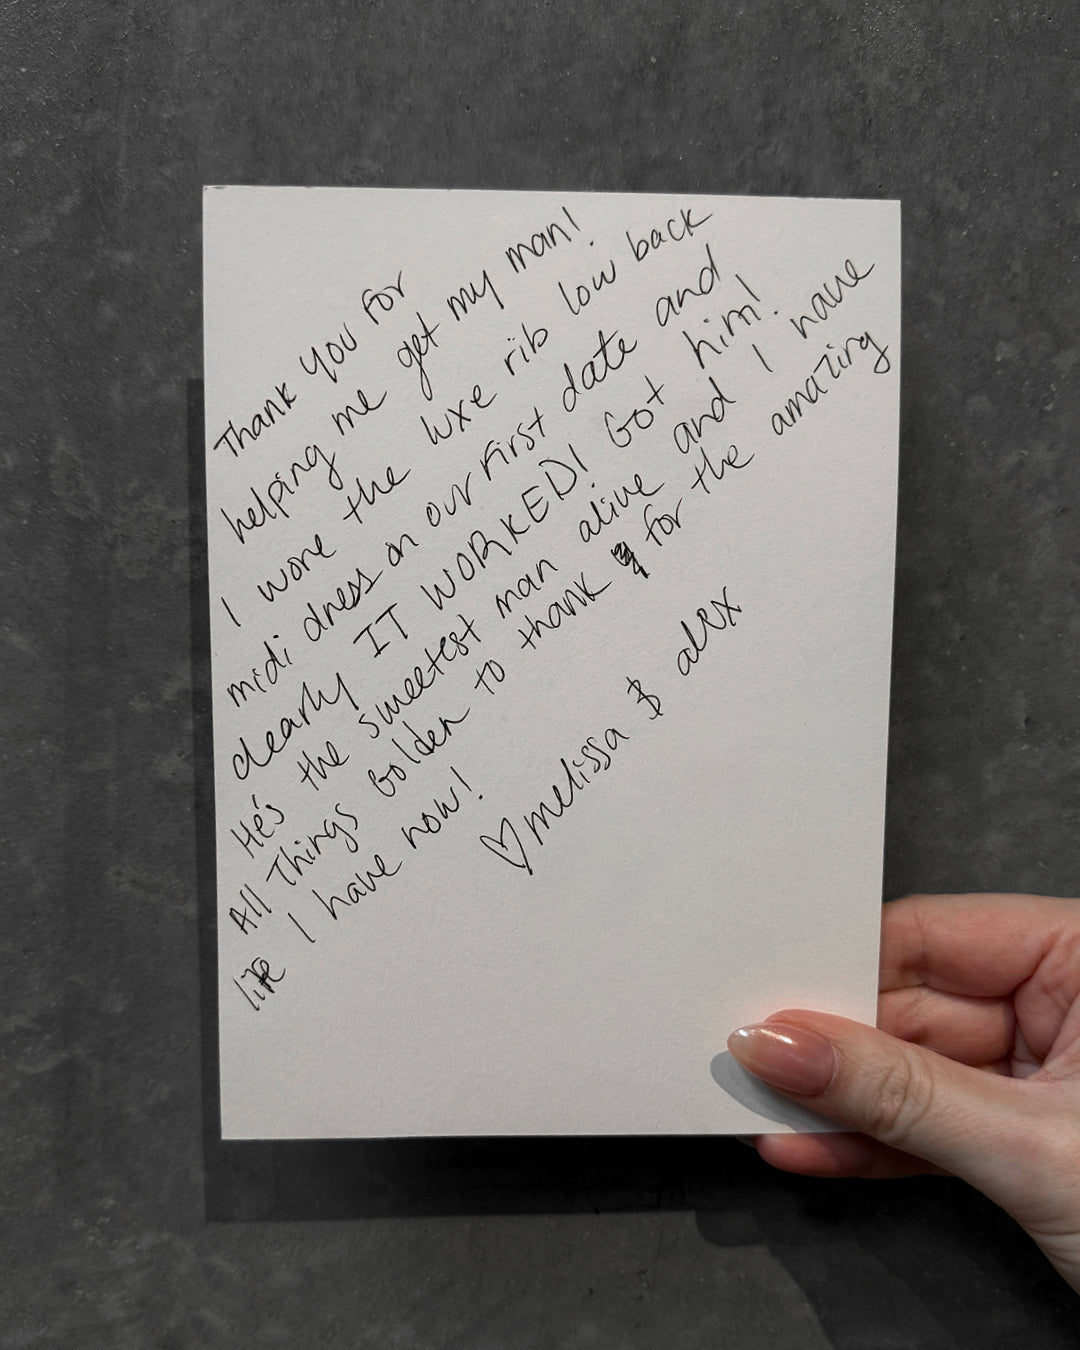 Thank you for
helping me get my man!
I wore the luxe rib low back
midi dress on our first date and
clearly IT WORKED! Got him!
He's the sweetest man alive and I have
All Things Golden to thank for the amazing
life I have now!
♡ melissa & alex